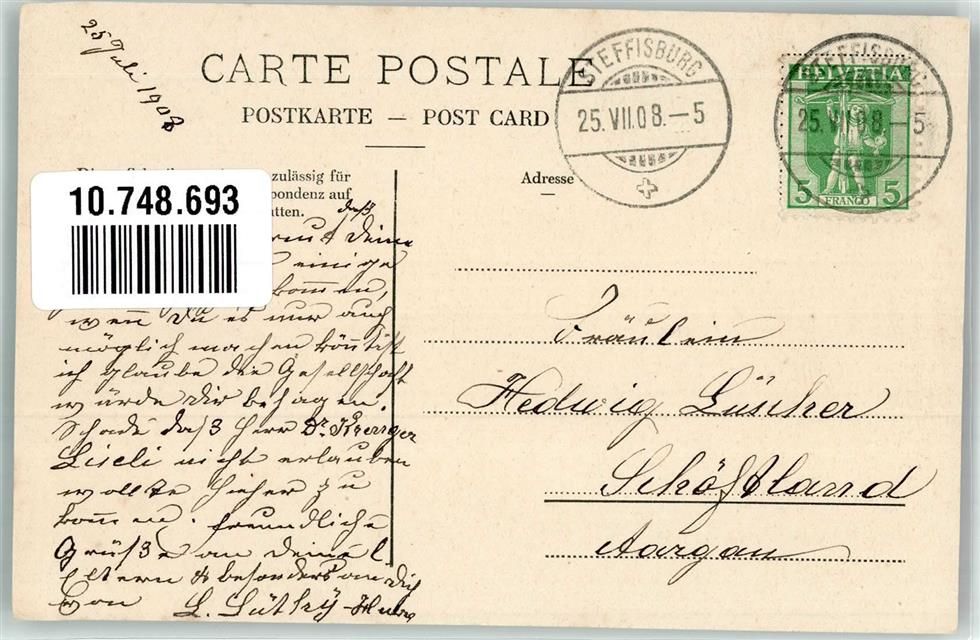 25 Juli 1908
CARTE POSTALE
POSTKARTE — POST CARD
STEFFISBURG
25.VII.08.–5
STEFFISBURG
25.VII.08–5
HELVETIA
5 FRANCO 5
zulässig für
pondenz auf
atten.
Adresse
10.748.693
daß
Deine
einige
kommen,
wenn Du es nur auch
möglich machen könntest
ich glaube die Gesellschaft
würde dir behagen.
Schade daß Herr Dr.
Liseli nicht erlauben
wollte hieher zu
kommen. freundliche
Grüße an Deine l
Eltern & besonders an dich
von L. Lüthy-
Fräulein
Hedwig Lüscher
Schöftland
Aargau